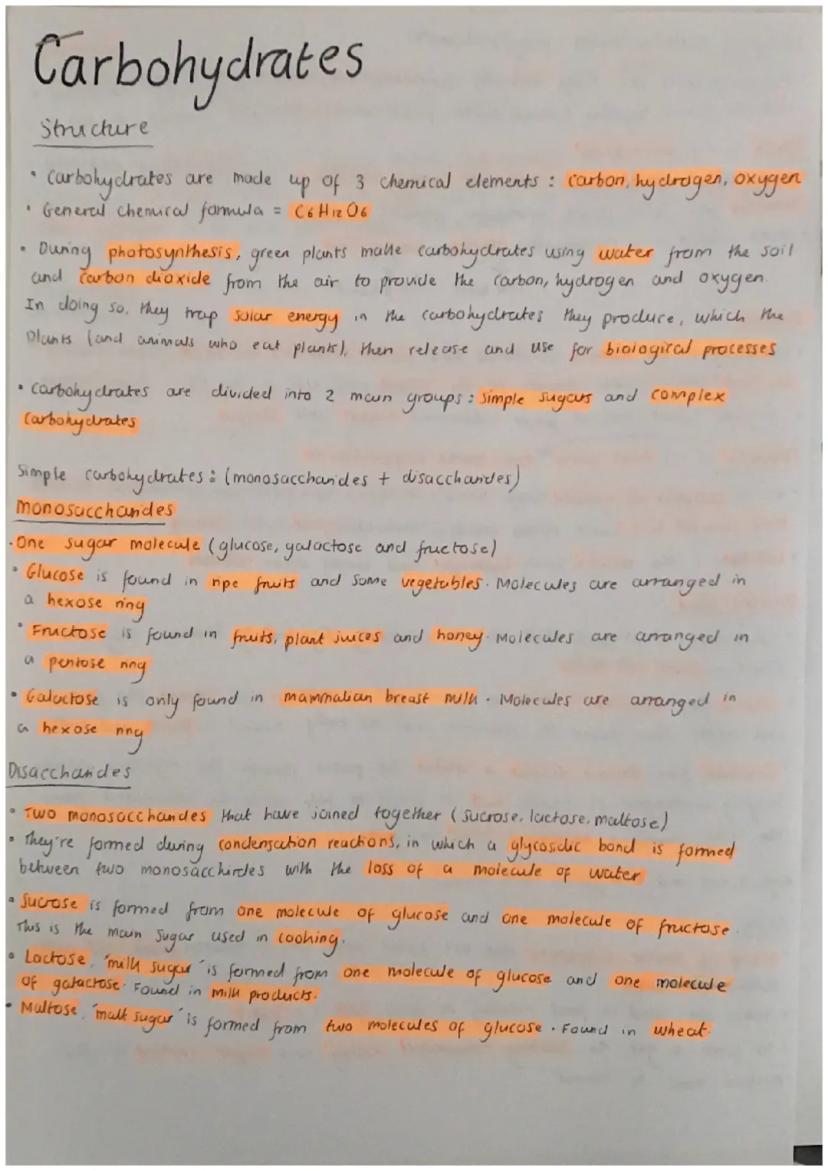 Carbohydrates
Structure
• Carbohydrates are made up of 3 chemical elements : carbon, hydrogen, oxygen
• General chemical formula = C6 H12 O6
• During photosynthesis, green plants make carbohydrates using water from the soil
and carbon dioxide from the air to provide the carbon, hydrogen and oxygen.
In doing so, they trap solar energy in the carbohydrates they produce, which the
plants (and animals who eat plants), then release and use for biological processes
• Carbohydrates are divided into 2 main groups : simple sugars and complex
carbohydrates
Simple carbohydrates : (monosaccharides + disaccharides)
monosaccharides
• One sugar molecule (glucose, galactose and fructose)
• Glucose is found in ripe fruits and some vegetables. Molecules are arranged in
a hexose ring
• Fructose is found in fruits, plant juices and honey. Molecules are arranged in
a pentose ring
• Galactose is only found in mammalian breast milk. Molecules are arranged in
a hexose ring
Disaccharides
• Two monosaccharides that have joined together (sucrose, lactose, maltose)
• They're formed during condensation reactions, in which a glycosdic bond is formed
between two monosacchirdes with the loss of a molecule of water
• Sucrose is formed from one molecule of glucose and one molecule of fructose.
This is the main sugar used in cooking.
• Lactose, "milk sugar" is formed from one molecule of glucose and one molecule
of galactose. Found in milk products.
• Maltose, "malt sugar" is formed from two molecules of glucose. Found in wheat.